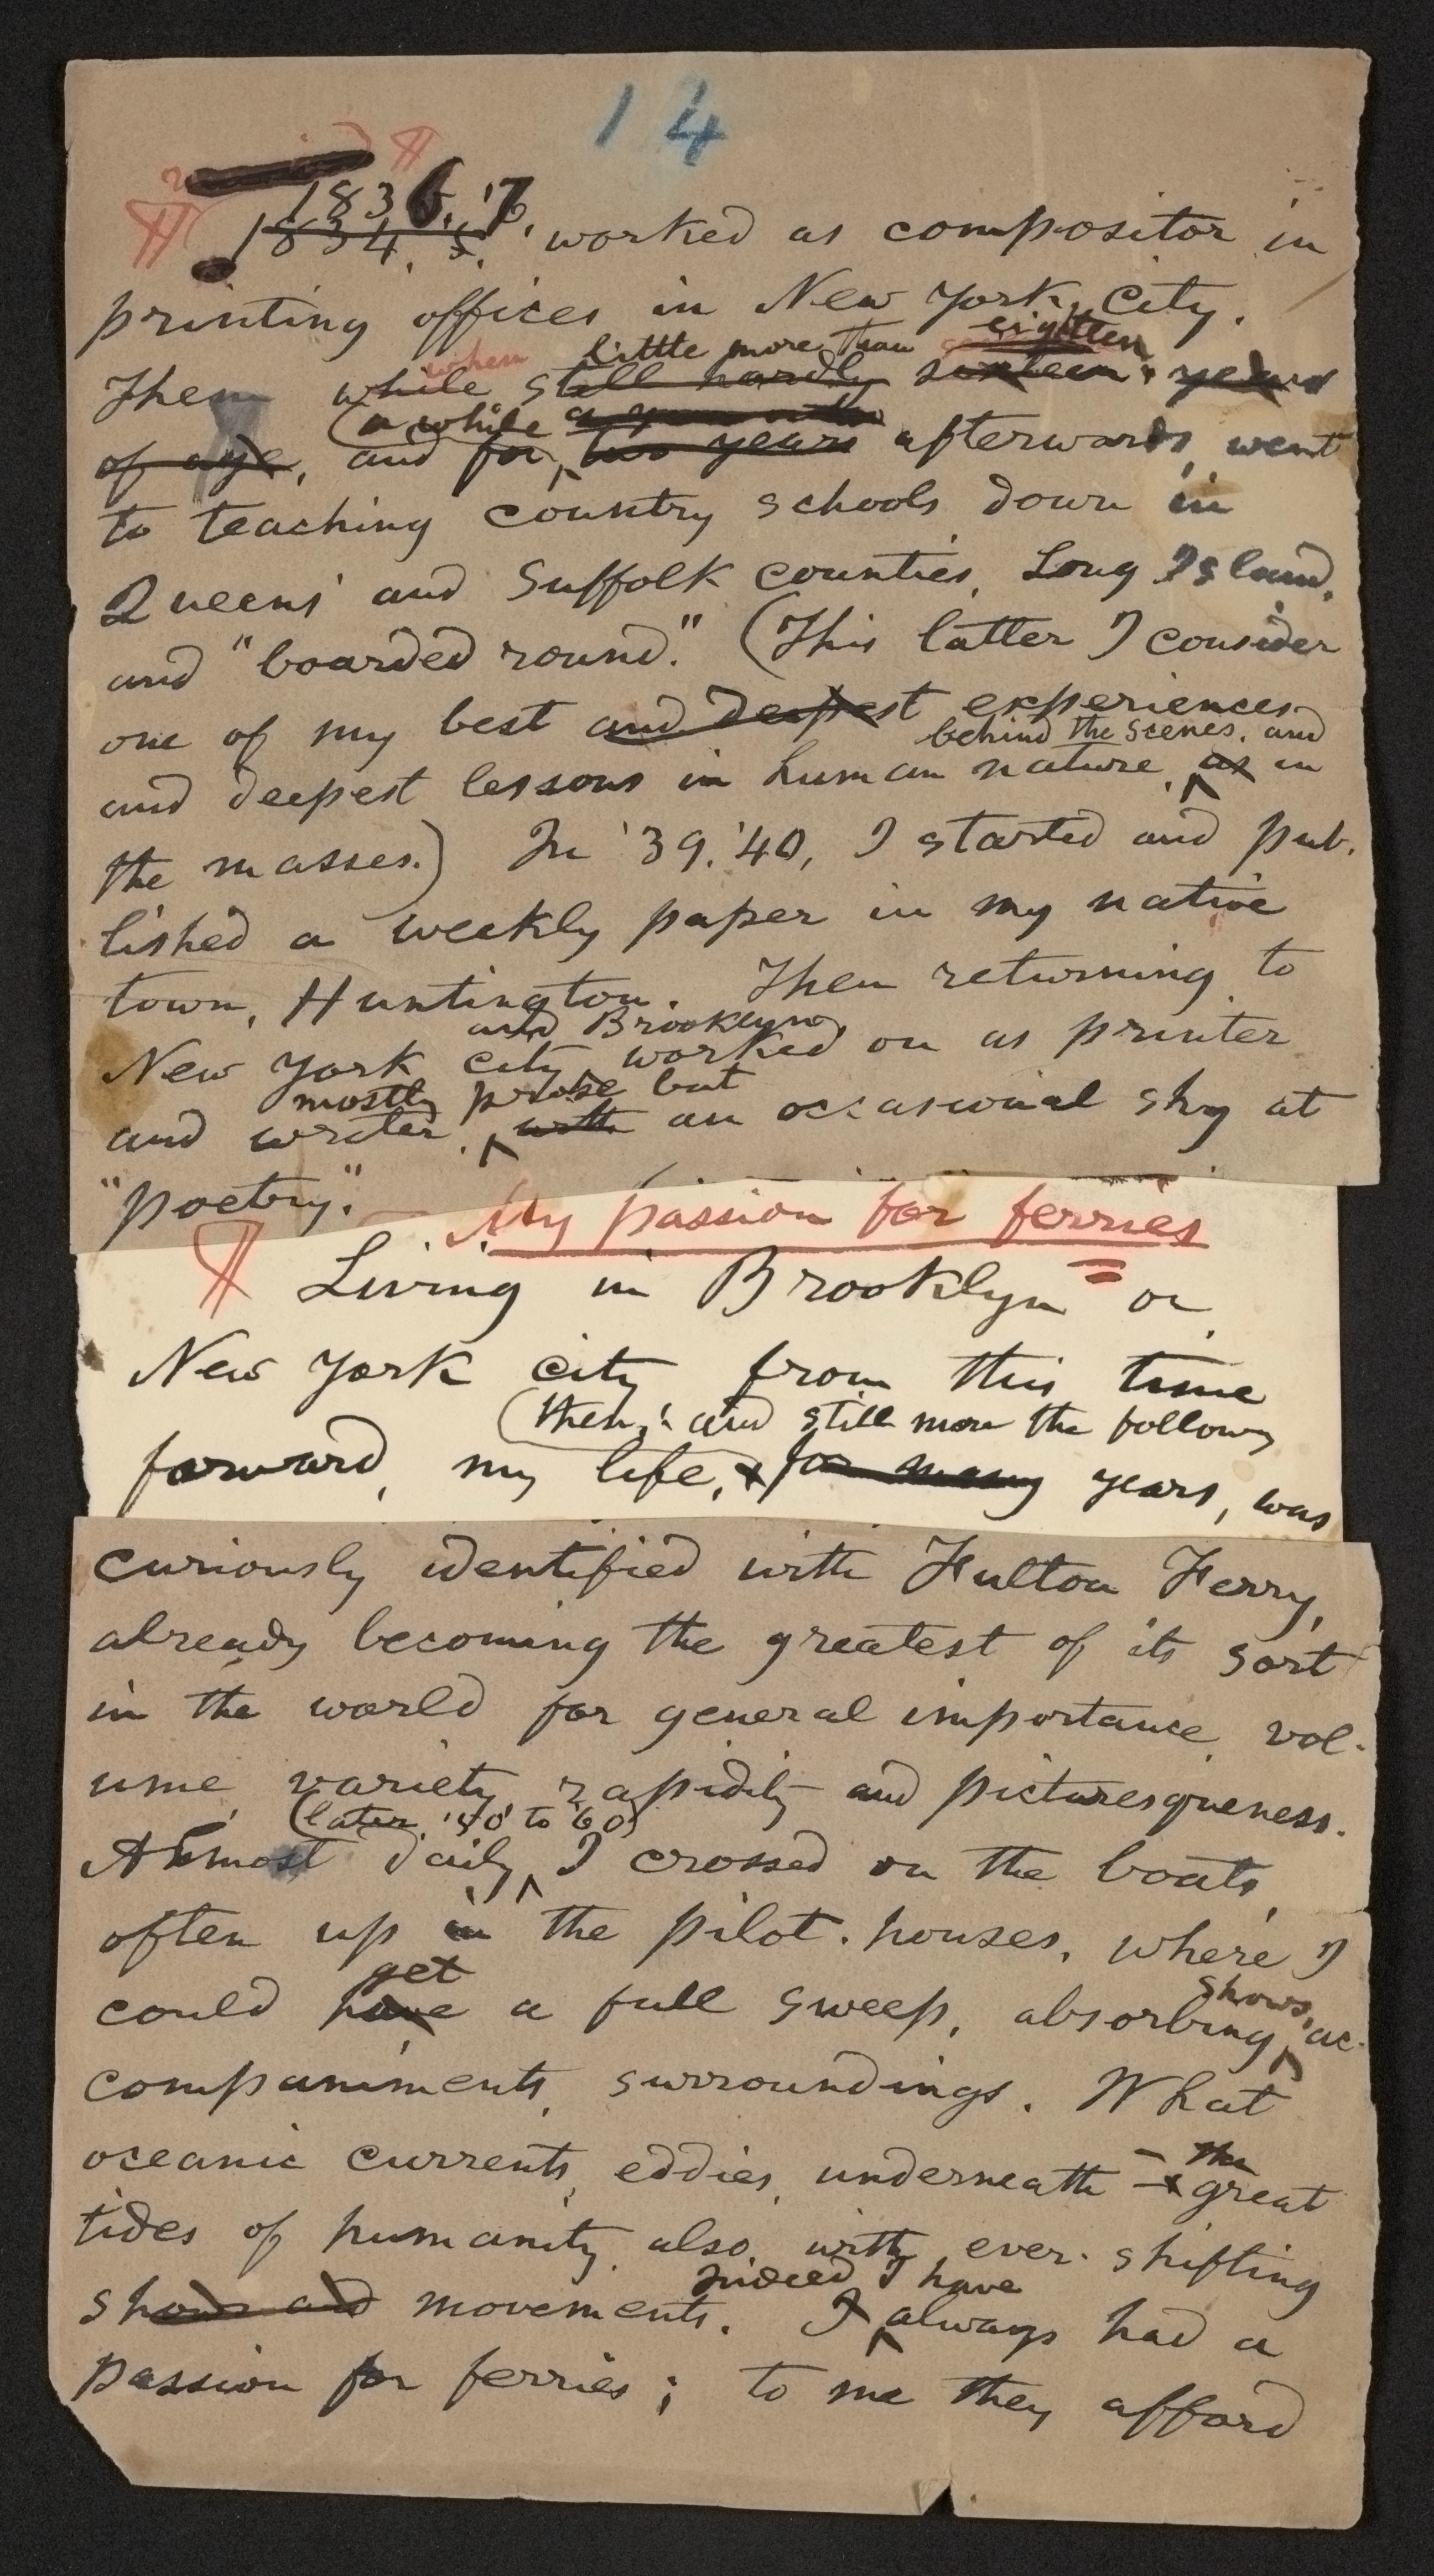 14
1836, '7,
1834, 5, worked as compositor in
printing offices in New York City.
when little more than eighteen
Then while still hardly sixteen years
(a while
of age, and for two years afterwards, went
to teaching country schools down in
Queens' and Suffolk counties, Long Island,
and "boarded round." (This latter I consider
one of my best and deepest experiences
behind the scenes, and
and deepest lessons in human nature, as in
the masses.) In '39, '40, I started and pub-
lished a weekly paper in my native
town, Huntington. Then returning to
and Brooklyn,
New York city worked on as printer
mostly prose but
and writer, with an occasional shy at
"poetry."
My passion for ferries
¶ Living in Brooklyn or
New York city from this time
(then, and still more the following
forward, my life, for many years, was
curiously identified with Fulton Ferry,
already becoming the greatest of its sort
in the world for general importance, vol-
ume, variety, rapidity and picturesqueness.
(later, '50 to '60)
Almost daily, I crossed on the boats,
often up in the pilot-houses, where I
get
could have a full sweep, absorbing
shows, ac-
companiments, surroundings. What
oceanic currents, eddies, underneath —
the great
tides of humanity also, with ever-shifting
Indeed I have
shows and movements. I always had a
passion for ferries; to me they afford